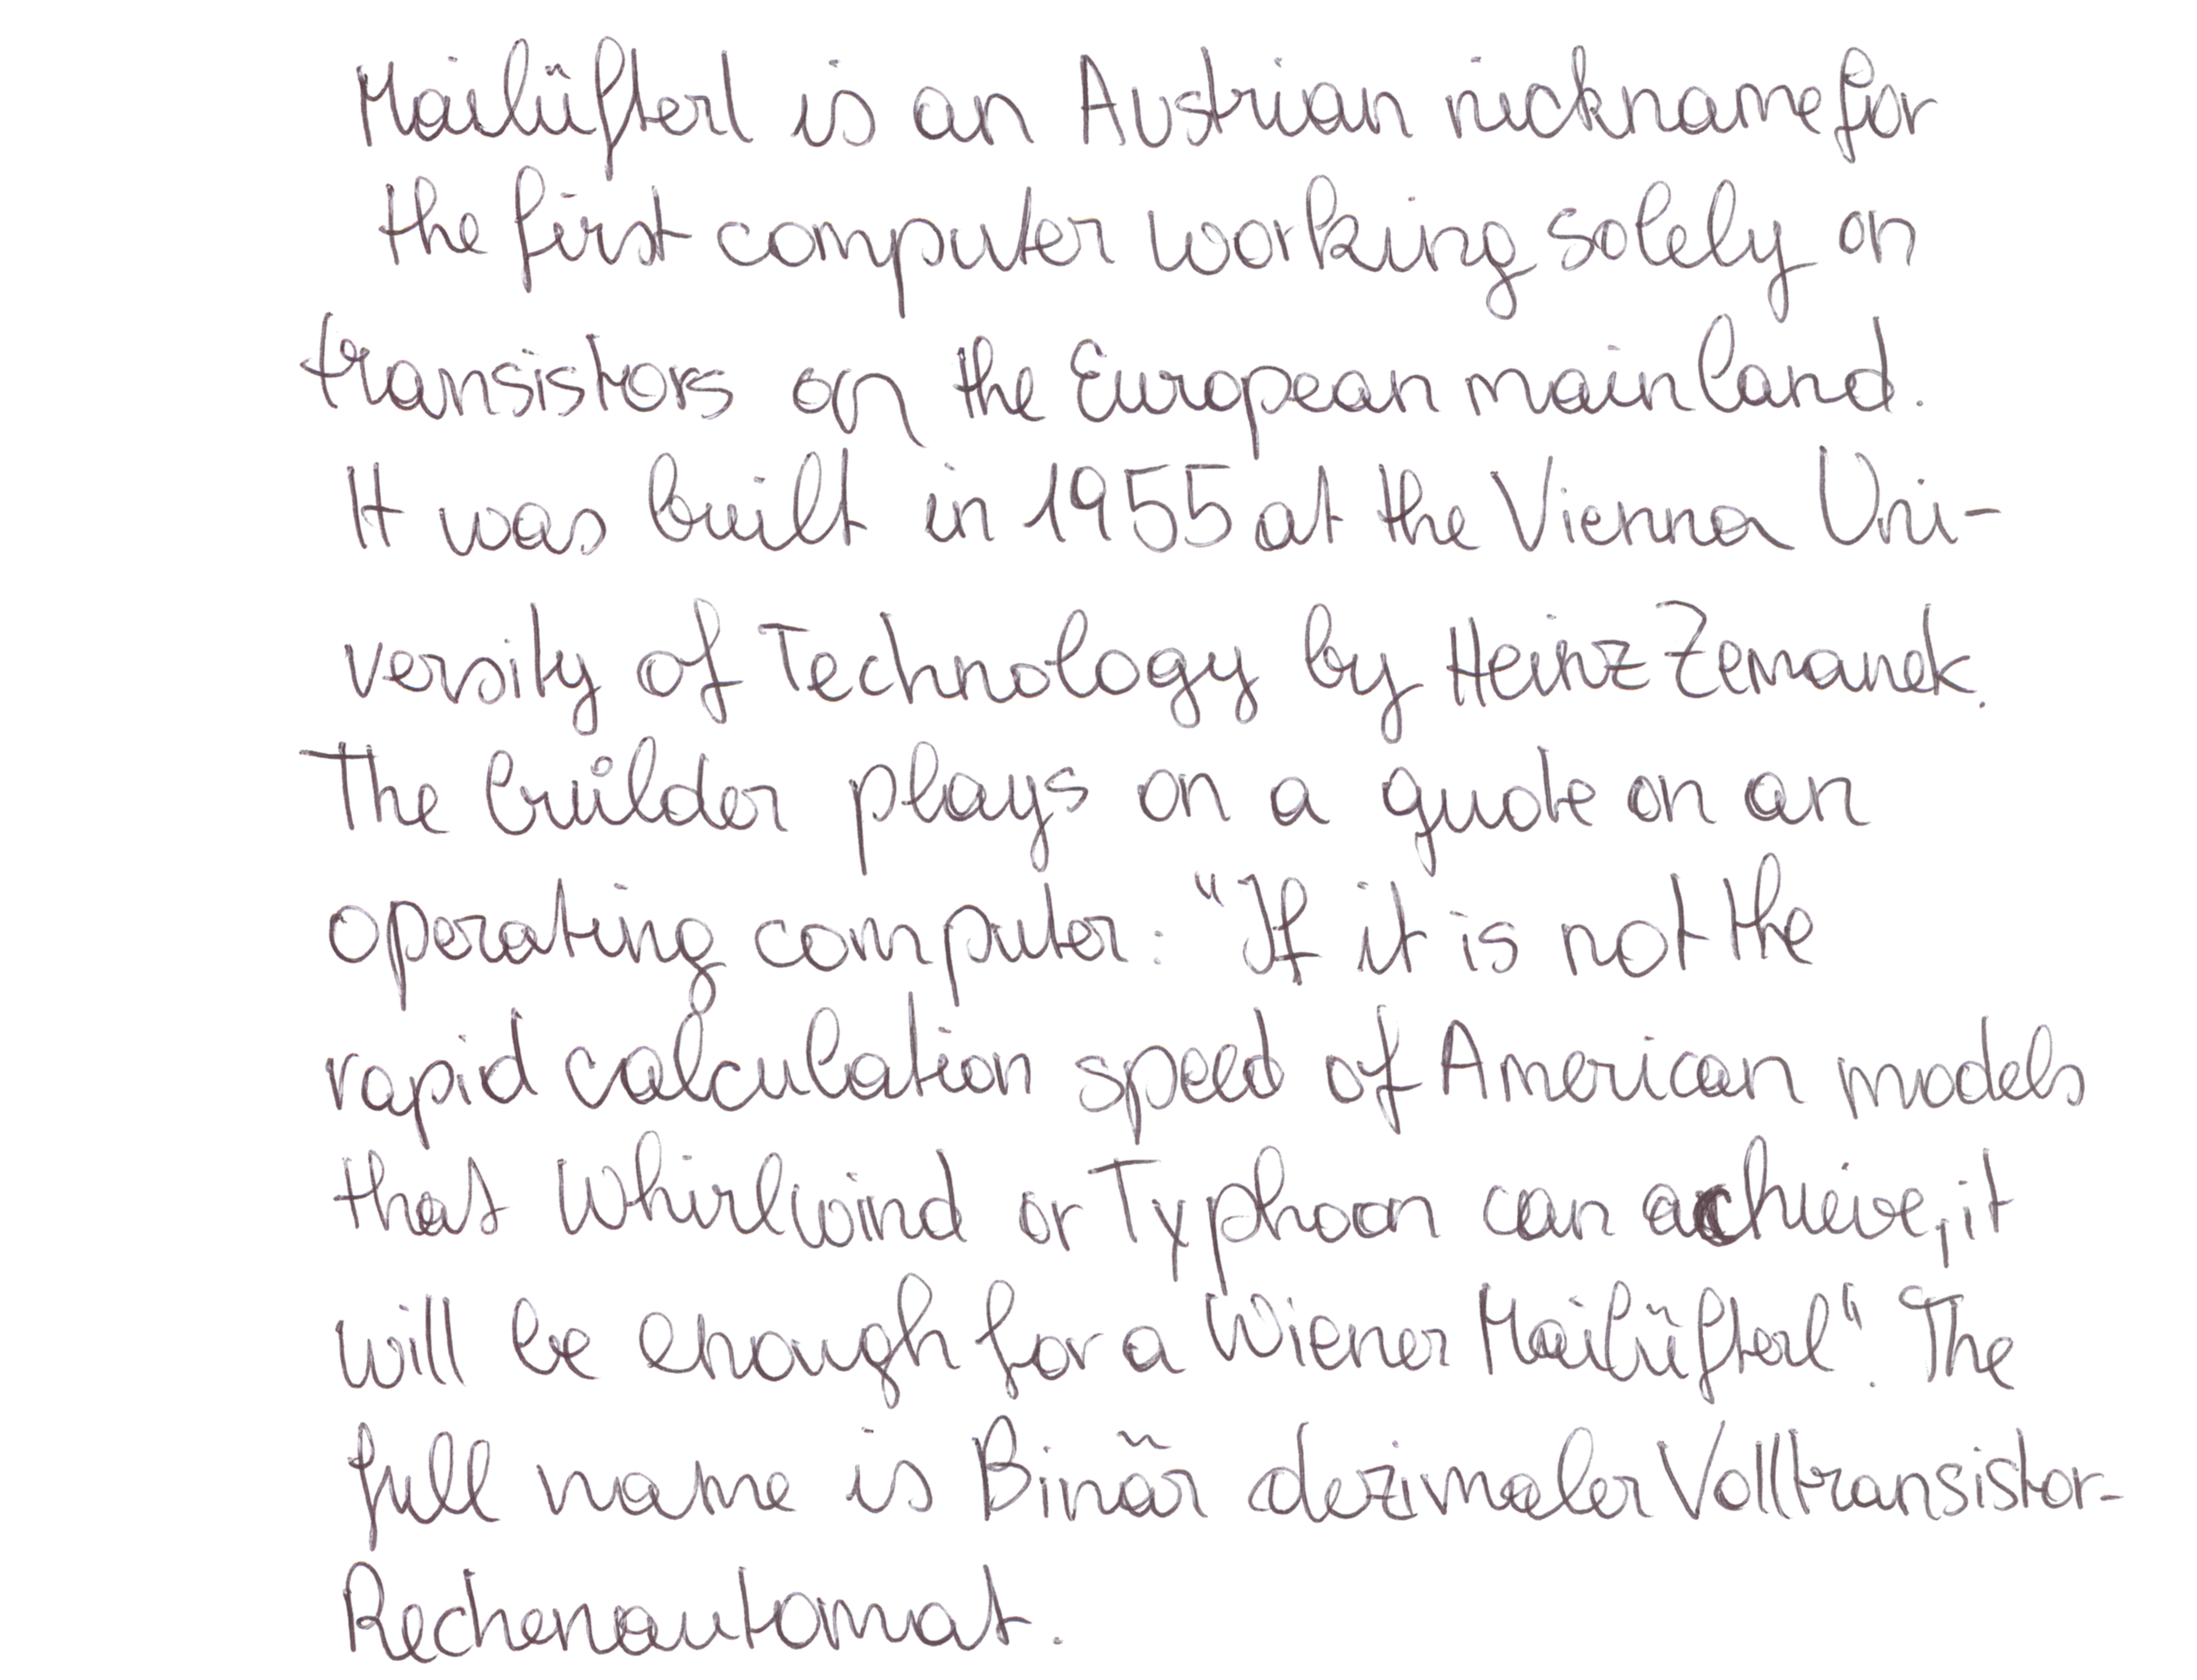 Mailüfterl is an Austrian nickname for
the first computer working solely on
transistors on the European mainland.
It was built in 1955 at the Vienna Uni-
versity of Technology by Heinz Zemanek.
The builder plays on a quote on an
operating computer: "If it is not the
rapid calculation speed of American models
that Whirlwind or Typhoon can achieve, it
will be enough for a Wiener Mailüfterl". The
full name is Binär dezimaler Volltransistor-
Rechenautomat.